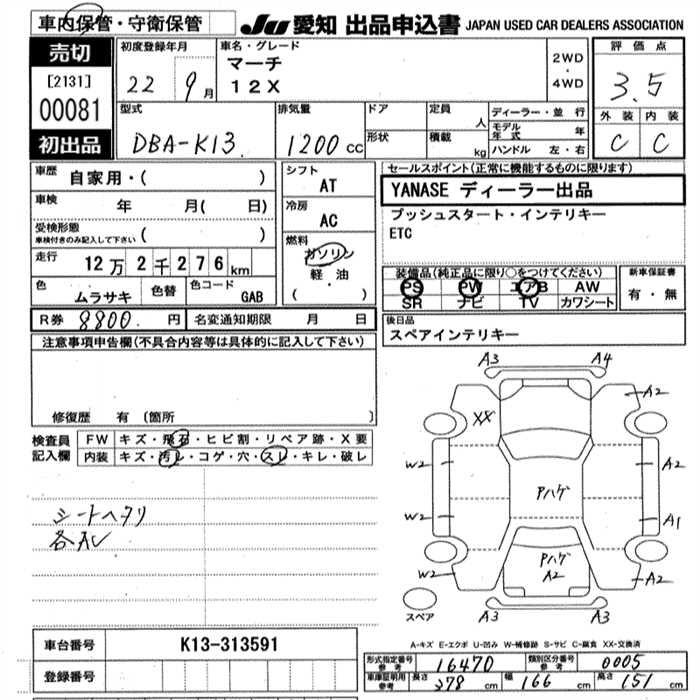 車内保管・守衛保管
JU 愛知 出品申込書 JAPAN USED CAR DEALERS ASSOCIATION
売切
[2131]
00081
初出品
初度登録年月
22 9月
車名・グレード
マーチ
12X
2WD
・
4WD
評価点
3.5
外装 内装
C C
型式
DBA-K13
排気量
1200 cc
ドア
形状
定員 人
積載 kg
ディーラー・並行
モデル年式 年
ハンドル 左・右
車歴 自家用・( )
車検 年 月( 日)
受検形態
車検付きのみ記入して下さい ( )
走行 12万2千276km
色 ムラサキ 色替 色コード GAB
シフト
AT
冷房
AC
燃料
ガソリン
軽・油
( )
セールスポイント(正常に機能するものに限ります)
YANASE ディーラー出品
プッシュスタート・インテリキー
ETC
装備品(純正品に限り○をつけてください)
PS PW エアB AW
SR ナビ TV カワシート
新車保証書
有・無
R券 8800. 円 名変通知期限 月 日
後日品
スペアインテリキー
注意事項申告欄(不具合内容等は具体的に記入して下さい)
修復歴 有 〔箇所 〕
検査員記入欄
FW キズ・飛石・ヒビ割・リペア跡・X要
内装 キズ・汚レ・コゲ・穴・スレ・キレ・破レ
シートヘタリ
各AU
A3 A4
XX A2
W2 A2
Pハゲ
W2 A1
Pハゲ
A2
W2 A2
スペア A3 A3
A-キズ E-エクボ U-凹み W-補修跡 S-サビ C-腐食 XX-交換済
車台番号 K13-313591
登録番号
形式指定番号参考 16470 類別区分番号参考 0005
車庫証明用参考 長さ 378 cm 幅 166 cm 高さ 151 cm